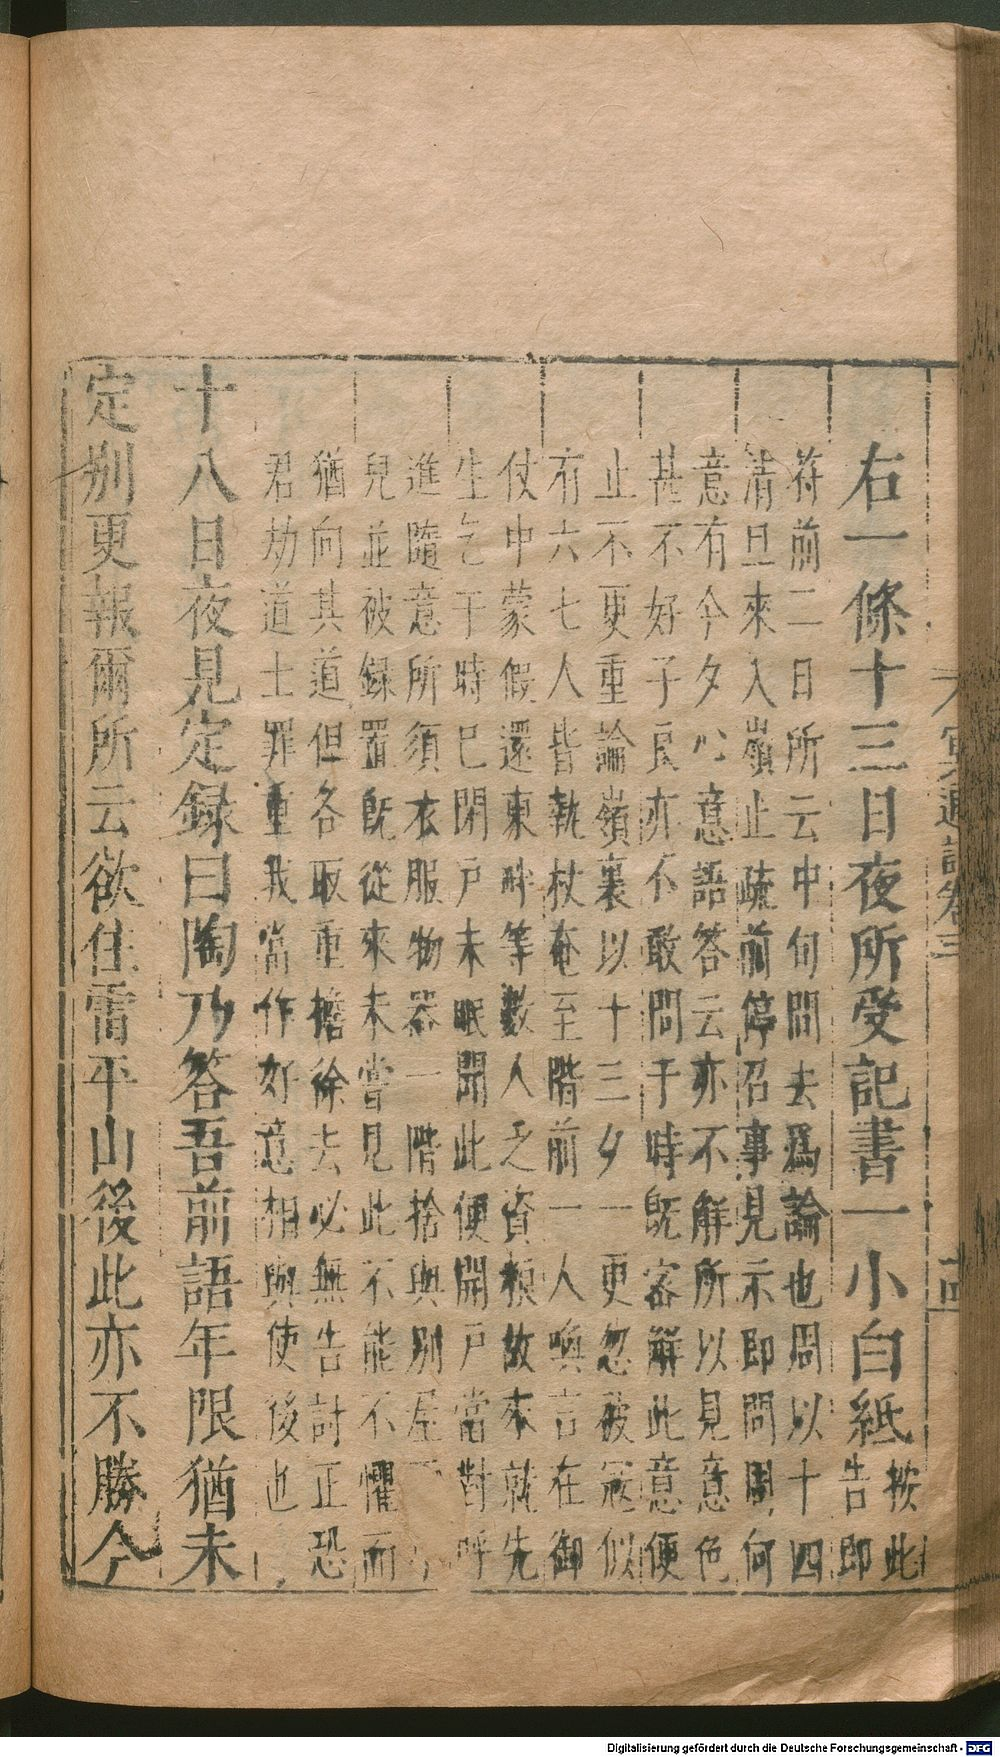 冥通記卷三
十四
右一條十三日夜所受記書一小白紙 按此告即
符前二日所云中旬間去爲論也周以十四
清旦來入嶺止疏前停召事見示即問周何
意有今夕心意語答云亦不解所以見意色
甚不好子良亦不敢問于時既客解此意便
止不更重論嶺裏以十三夕一更忽被寇似
有六七人皆執杖奄至階前一人喚言在御
仗中蒙假還東醉等數人乏資糧故來就先
生乞于時已閉戸未眠聞此便開戸當對呼
進隨意所須衣服物器一階捨與別屋
兒並被録置既從來未嘗見此不能不懼而
猶向其道但各取重擔徐去必無告討正恐
君劫道士罪重我當作好意相與使後也
十八日夜見定録曰陶乃答吾前語年限猶未
定别更報爾所云欲住雷平山後此亦不勝今
Digitalisierung gefördert durch die Deutsche Forschungsgemeinschaft - DFG